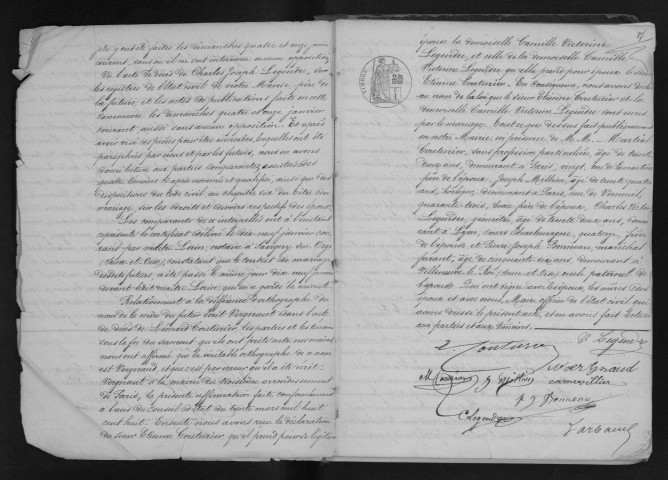 y ont été faites les dimanches quatre et onze
courant, sans qu'il ne soit intervenu aucune opposition
Vu l'acte de décès de Charles Joseph Legendre, sur
les registres de l'état civil de notre Mairie, père de
la future, et les actes de publications faites en cette
commune les dimanches quatre et onze janvier
courant, aussi sans aucune opposition. Et après
avoir visé ces pièces pour être annexées, lesquelles ont été
paraphées par nous et par les futurs, nous en avons
donné lecture aux parties comparantes assistées des
quatre témoins ci-après nommés et qualifiés, ainsi que des
dispositions du Code civil, au chapitre six du titre du
mariage, sur les droits et devoirs respectifs des époux.
Les comparants de ce interpellés ont à l'instant
représenté le certificat délivré le dix neuf janvier cou-
rant par maître Loire, notaire à Savigny sur Orge
(Seine et Oise), constatant que le contrat de mariage
desdits futurs, a été passé le même jour dix neuf janvier
devant ledit maître Loire, qui en a gardé la minute.
Relativement à la différence d'orthographe du
nom de la mère du futur soit Vergnaut dans l'acte
de décès de Léonard Couturier, les parties et les témoins
sous la foi du serment qu'ils ont prêté entre nos mains
nous ont affirmé que la véritable orthographe de ce nom
est Vergnaud, et que c'est par erreur qu'il a été écrit
Vergnaut à la mairie du troisième arrondissement
de Paris, la présente affirmation faite conformément
à l'avis du Conseil d'Etat du trente mars mil huit
cent huit. Ensuite nous avons reçu la déclaration
du sieur Etienne Couturier qu'il prend pour légitime
épouse la demoiselle Camille Victorine
Legendre, et celle de la demoiselle Camille
Victorine Legendre qu'elle prend pour époux le sieur
Etienne Couturier. En conséquence, nous avons déclaré
au nom de la loi que le sieur Etienne Couturier et la
demoiselle Camille Victorine Legendre sont unis
par le mariage. Tout ce que dessus fait publiquement
en notre Mairie, en présence de M.M. Martial
Couturier, sans profession particulière, âgé de trente
deux ans, demeurant à Paris, vingt, rue de
frère de l'époux Joseph Millian, âgé de trente quatre
ans, demeurant à Paris, rue de Verneuil,
quarante trois, beau frère de l'époux. Charles Victor
Legendre, géomètre, âgé de trente deux ans, demeu-
rant à Lyon, cours Charlemagne, quatorze, frère
de l'épouse et Pierre Joseph Bonneau, maréchal
ferrant, âgé de cinquante six ans, demeurant à
Villeneuve le Roi, (Seine et Oise), oncle paternel de
l'épouse. Qui ont signé avec les époux, les mères des
époux et avec nous, Maire officier de l'état civil qui
avons dressé le présent acte, et en avons fait lecture
aux parties et aux témoins.
C. Legendre
E. Couturier
Vergnaud
M Couturier J Millian
P J Bonneau
C Legendre